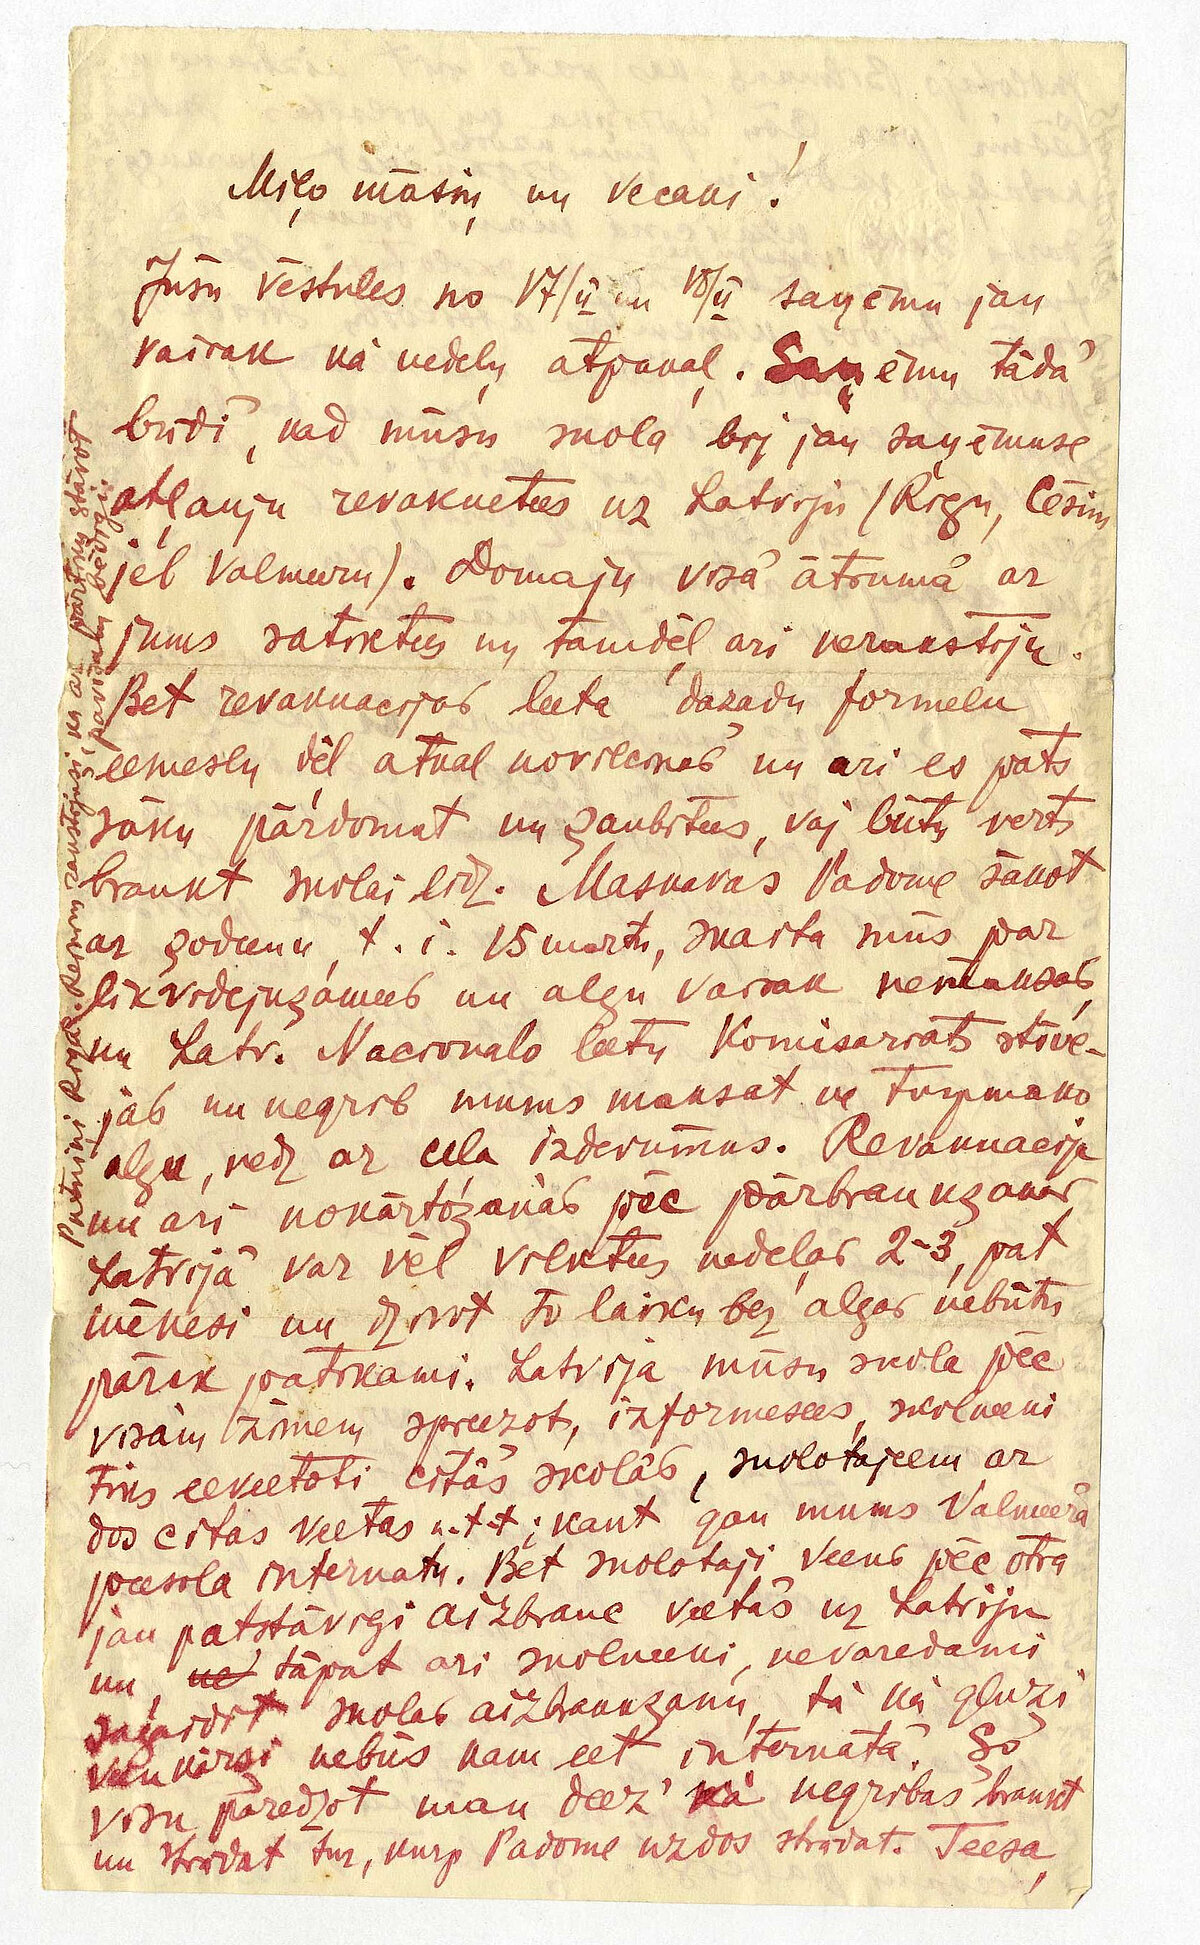 Miļo māsiņ un vecaki!
Jūsu vēstules no 17/II un 18/II saņēmu jau
vairak kā nedēļu atpakaļ. Saņēmu tādā
brīdī, kad mūsu skola bij jau saņēmuse
atļauju reevakuetees uz Latviju (Rīgu, Cēsim
jeb Valmeeru). Domaju visā ātrumā ar
jums satiktees un tamdēļ ari nerakstiju.
Bet reevakuacijas leeta dažadu formelu
eemeslu dēļ atkal novilcinas un ari es pats
sāku pārdomat un šaubitees, vaj būtu verts
braukt skolai līdz. Maskavas Padome sākot
ar šodeenu, t. i. 15 martu, skaita mūs par
likvidejušamees un algu vairak nemaksās,
un Latv. Nacionalo leetu Komisariats stīvē-
jas un negrib mums maksat ne turpmako
algu, nedz ar ceļa izdevumus. Revakuacija
un ari nokārtošanās pēc pārbraukšanas
Latvijā var vēl vilktees nedeļas 2-3, pat
mēnesi un dzivot to laiku bez algas nebūtu
pārak patikami. Latvija mūsu skola pēc
visām zimem spreežot, izformesees, skolneeki
tiks eeveetoti citās skolās, skolotajeem ar
dos citas veetas u.t.t.; kaut gan mums Valmeerā
peesola internatu. Bet skolotaji veens pēc otra
jau patstāvigi aizbrauc veetās uz Latviju
un, ne tāpat ari skolneeki, nevaredami
sagaidit skolas aizbraukšanu, tā kā gluži
veenkārši nebūs kam eet internatā. Šo
visu paredzot man deez' kā negribas braukt
un strādat tur, kurp Padome uzdos strādat. Teesa,
Putniņi Rīgā. Reiniņ rakstijuši, ka ar pārtiku stāvot
pavisam bēdigi.